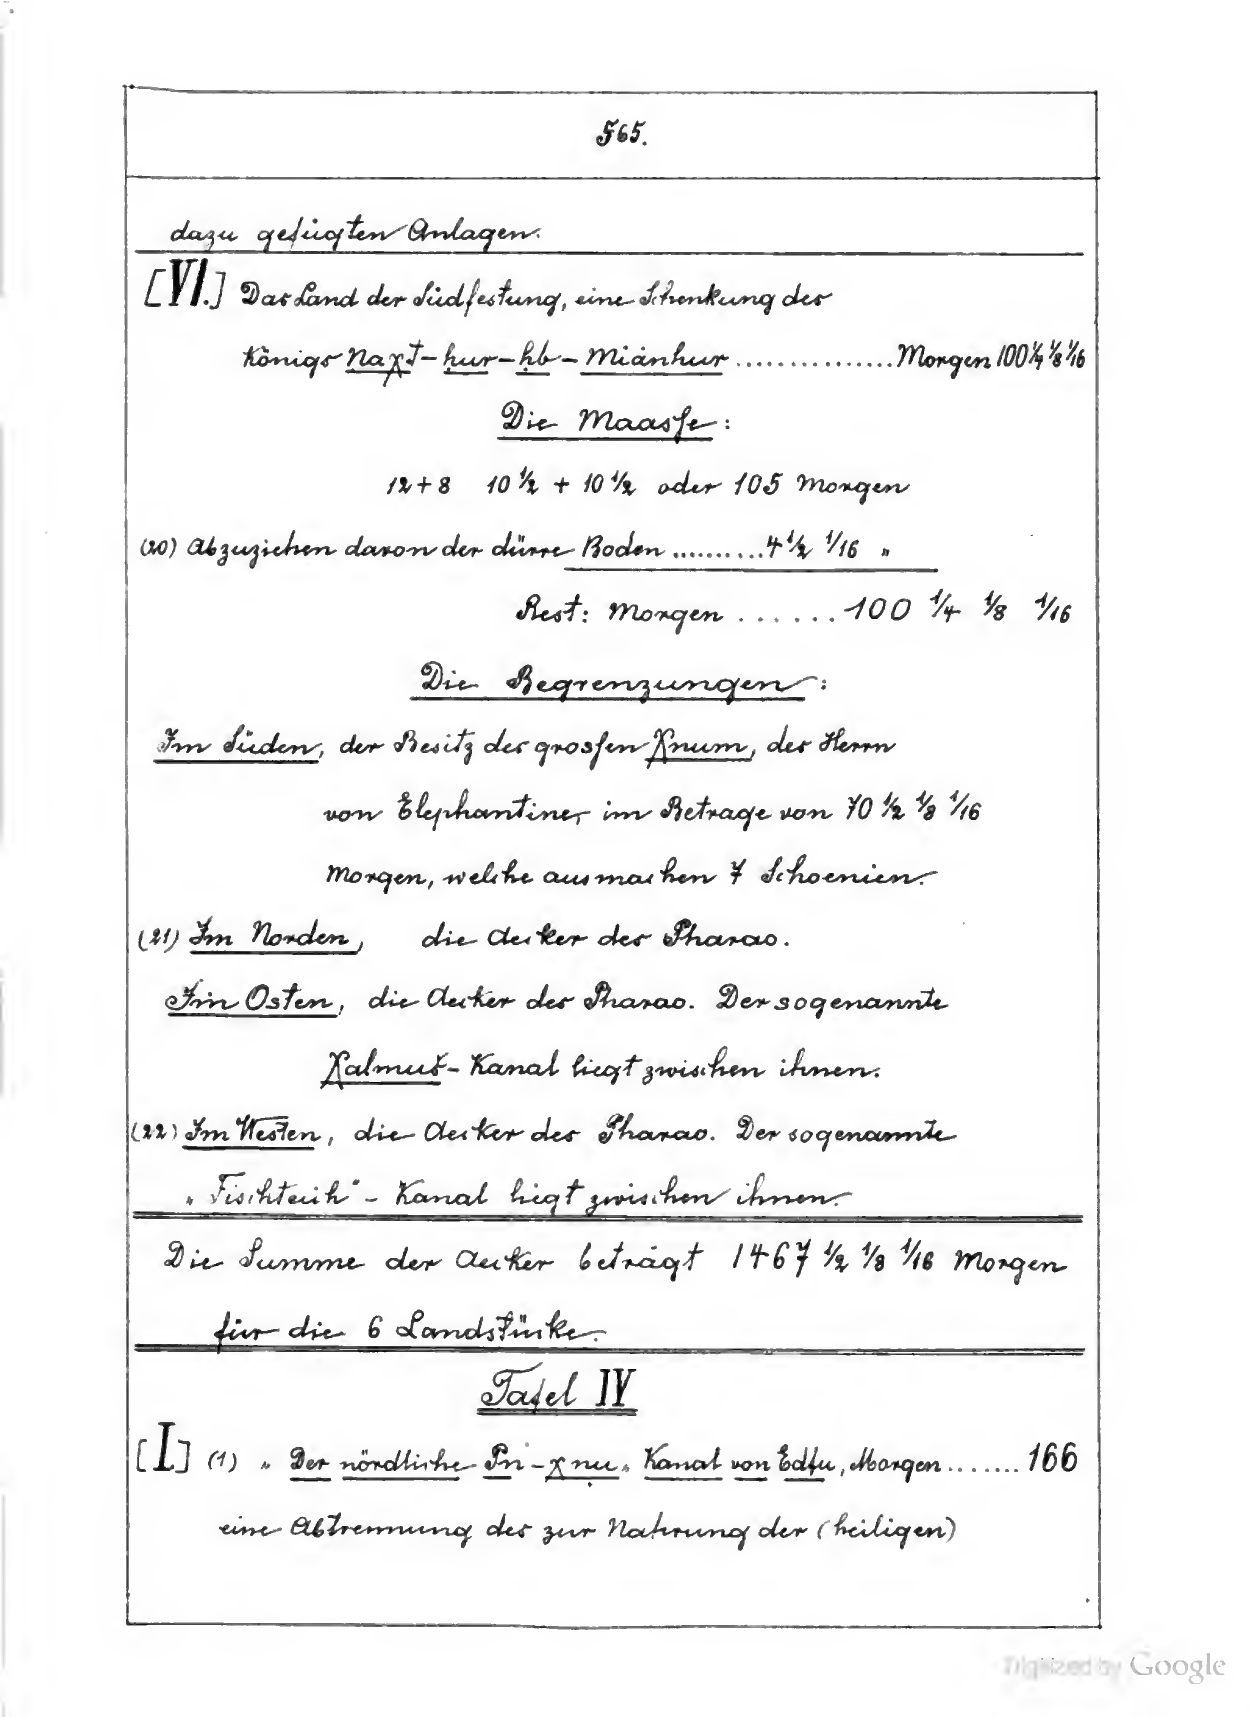 565.
dazu gefügten Anlagen.
[VI.] Das Land der Südfestung, eine Schenkung des
Königs Naχt-ḥur-ḥb-Miánhur ............... Morgen 100 1/4 1/8 1/16
Die Maasse:
12+8 10 1/2 + 10 1/2 oder 105 Morgen
(20) Abzuziehen davon der dürre Boden .......... 4 1/2 1/16 "
Rest: Morgen ...... 100 1/4 1/8 1/16
Die Begrenzungen:
Im Süden, der Besitz des grossen Χnum, des Herrn
von Elephantine, im Betrage von 70 1/2 1/8 1/16
Morgen, welche ausmachen 7 Schoenien.
(21) Im Norden, die Aecker des Pharao.
Im Osten, die Aecker des Pharao. Der sogenannte
Χalmus-Kanal liegt zwischen ihnen.
(22) Im Westen, die Aecker des Pharao. Der sogenannte
„Fischteich“-Kanal liegt zwischen ihnen.
Die Summe der Aecker beträgt 1467 1/2 1/8 1/16 Morgen
für die 6 Landstücke.
Tafel IV
[I] (1) „Der nördliche Pn-χnu„ Kanal von Edfu, Morgen ....... 166
eine Abtrennung des zur Nahrung der (heiligen)
Digitized by Google